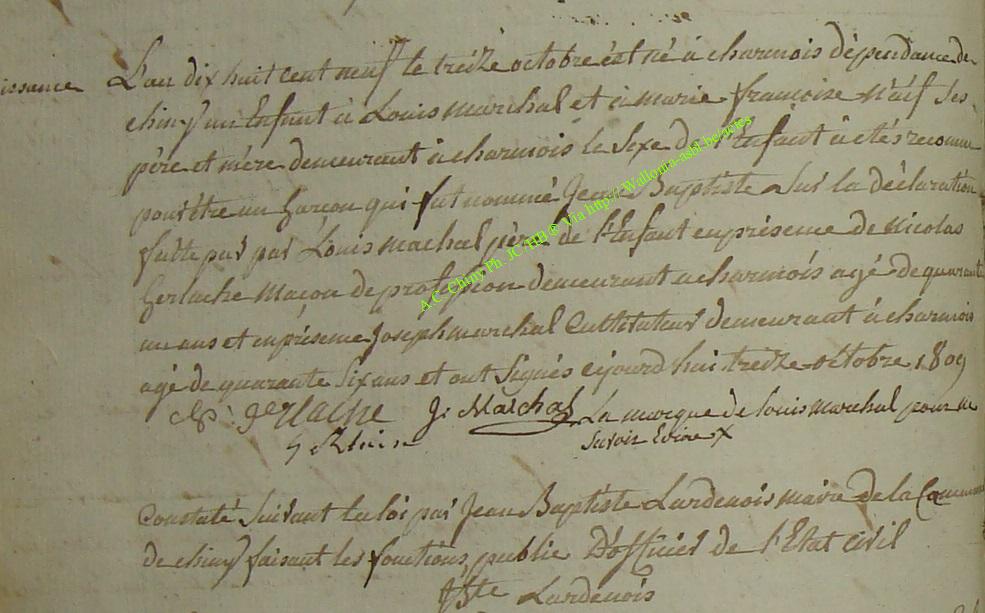 issance
L'an dix huit cent neuf le treize octobre est né à charmois dépendance de
chiny un Enfant à Louis marchal et à marie françoise Naif ses
père et mère demeurant à charmois le sexe de l'Enfant à etés reconnu
pour être un Garcon qui fut nommé Jean Baptiste sur la déclaration
faite par par Louis machal père de l'Enfant en présence de Nicolas
Gerlache Maçon de profession demeurant a charmois agé de quarante
un ans et en présence Joseph marchal Cultivateur demeurant à charmois
agé de quarante six ans et ont signés ejourd hui treize octobre 1809
gerlache J. Marchal La marque de louis marchal pour ne
savoir Ecrire X
Constaté suivant la loi par Jean Baptiste Lardenois maire de la Commune
de chiny faisant les fonctions public D'officier de l'Etat civil
JBte Lardenois
A.C. Chiny Ph. JC. HB ® Via http://Wallonia-asbl.be/actes